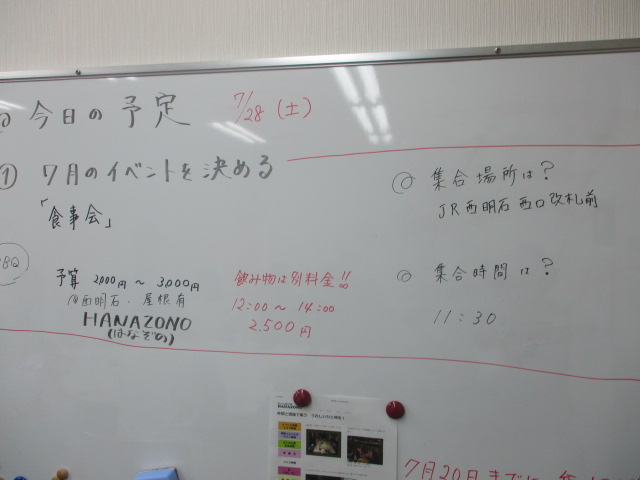 今日の予定 7/28(土)
① 7月のイベントを決める
「食事会」
予算 2,000円～3,000円
@西明石・屋根有
HANAZONO
(はなぞの)
飲み物は別料金!!
12:00～14:00
2,500円
◎ 集合場所は?
JR西明石西口改札前
◎ 集合時間は?
11:30
HANAZONO
7月20日までに